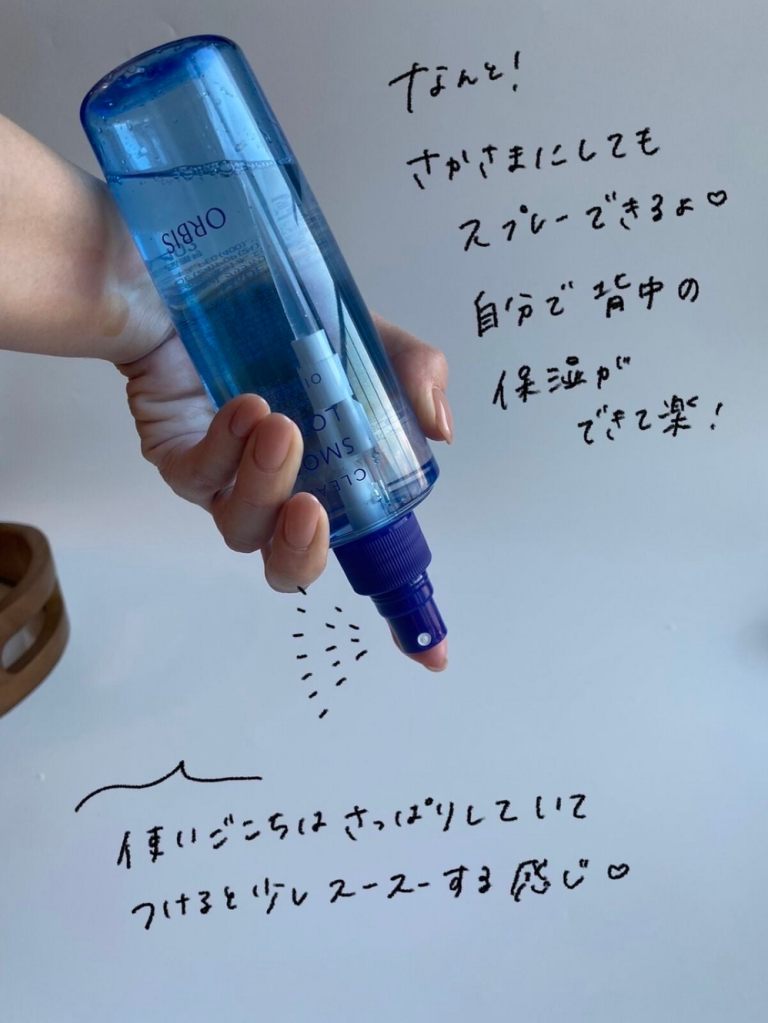 なんと!
さかさまにしても
スプレーできるよ♡
自分で背中の
保湿が
できて楽!
ORBIS
CLEA
SMO
LO
使いごこちはさっぱりしていて
つけると少しスースーする感じ♡